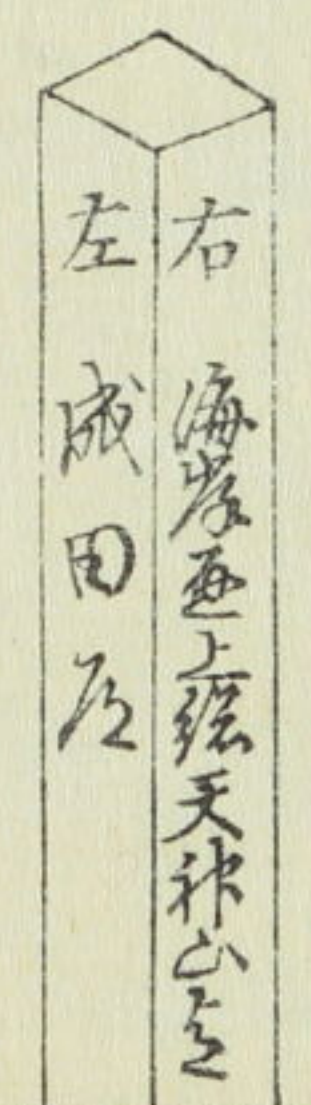 右 海岸通上総天神山道
左 成田道